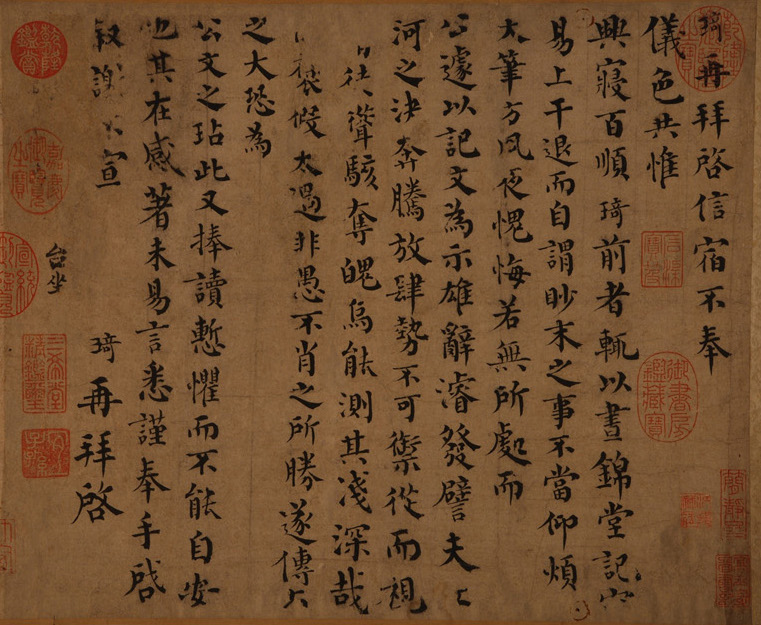 琦再拜啓信宿不奉
儀色共惟
興寢百順琦前者輒以晝錦堂記
易上干退而自謂眇末之事不當仰煩
大筆方夙夜愧悔若無所處而
公遽以記文為示雄辭濬發譬夫
河之決奔騰放肆勢不可禦從而視
徒聳駭奪魄烏能測其淺深哉
褒假太過非愚不肖之所勝遂傳
之大恐為
公文之玷此又捧讀慙懼而不能自安
也其在感著未易言悉謹奉手啓
叙謝不宣
琦再拜啓
台坐
三希堂精鑑璽
宜子孫